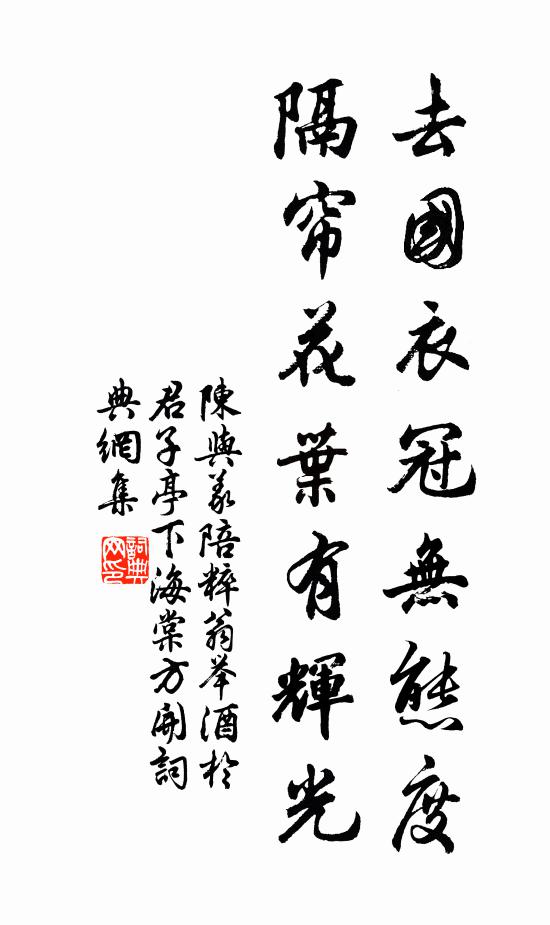 去國衣冠無態度
隔帘花葉有輝光
陳與義陪粹翁举酒於
君子亭下海棠方開詞
典網集
詞典
网印